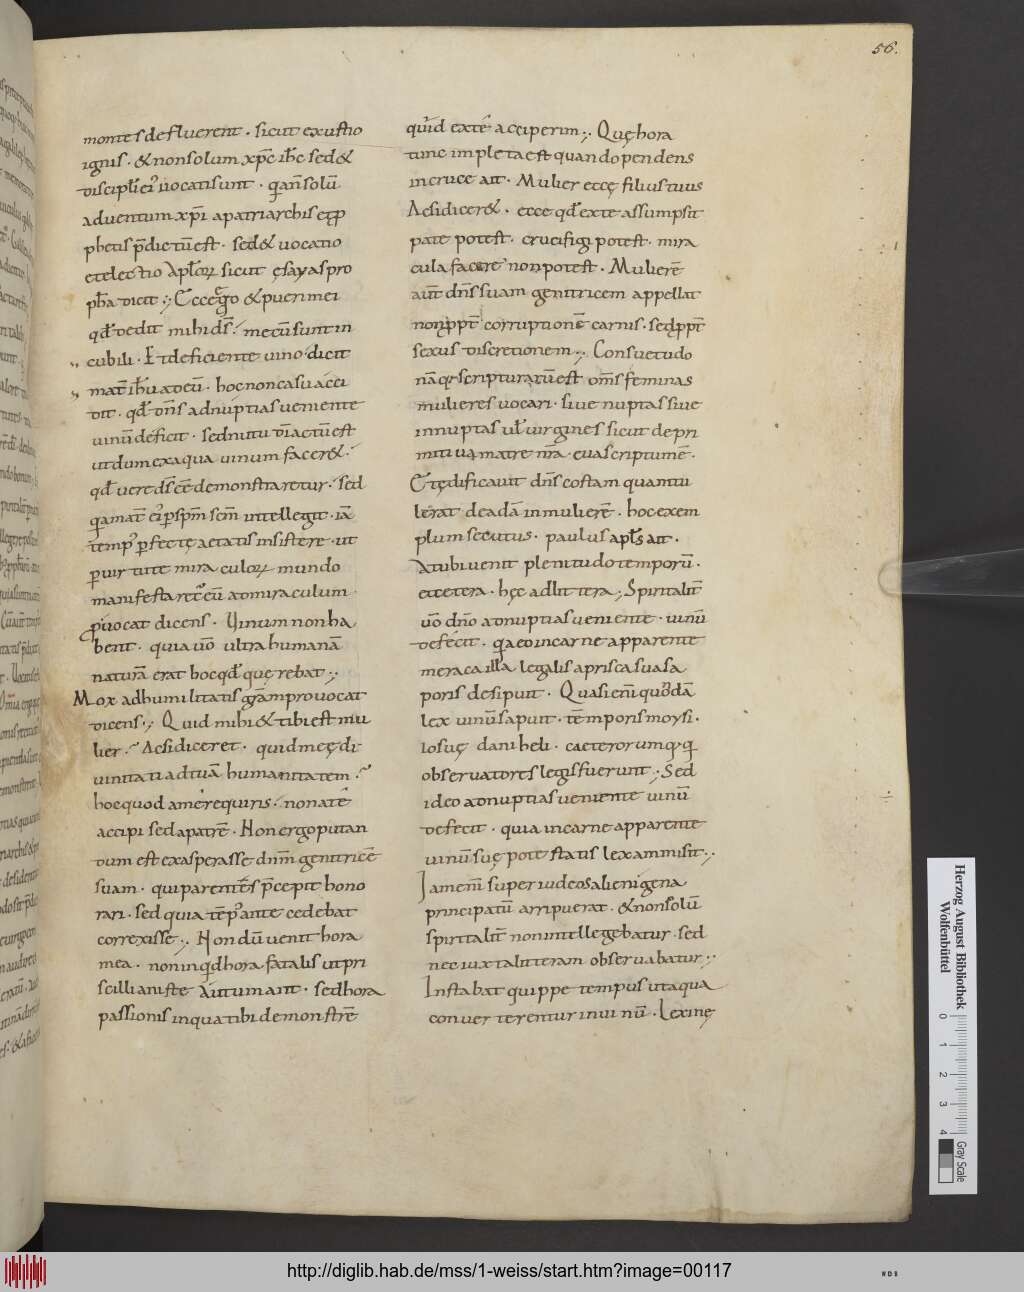 56.
montes defluerent · sicut exustio
ignis · & non solum xp̄c ih̄c sed &
discipl̄i ei᾽ uocati sunt · q̄an̄ solū
aduentum xp̄i a patriarchis & p̄p
phetis p̄dictū est · sed & uocatio
et electio Apl̄oꝝ sicut esayas pro
ph̄a dicit ·,· Ecce ego & pueri mei
qđ dedit mihi dn̄s · mecū sunt in
cubili · Et deficiente uino dicit
mat̄ ih̄u ad eū · hoc non casu acci
dit · qđ dn̄s ad nuptias ueniente
uinū deficit · sed nutu dī actū est
ut dum ex aqua uinum facer& ·
qđ uere ds̄ eē demonstraretur · sed
q̄a mat̄ ei᾽ p̄ sp̄m sc̄m intellegit · iā
temp᾽ p̄fectę aetatis insistere · ut
p̄ uirtute miraculoꝝ mundo
manifestaret᾽ eū ad miraculum
p̄uocat dicens · Uinum non ha
bent · quia uō ultra humanā
naturā erat hoc qđ querebat ·,·
Mox ad humilitatis gr̄am prouocat
dicens ·,· Quid mihi & tibi est mu
lier · Ac si diceret · quid meę di
uinitati ad tuā humanitatem ·
hoc quod a me requiris · non a te
accipi sed a patrē · Non ergo putan
dum est exasperasse dn̄m genitricē
suam · qui parentes p̄cepit hono
rari · sed quia tēp᾽ antecedebat
correxisse ·,· Nondū uenit hora
mea · non inq̄d hora fatalis ut pri
scillianiste autumant · sed hora
passionis inqua tibi demonstrē
quid ex te acceperim ·,· Quę hora
tunc impleta est quando pendens
in cruce ait · Mulier ecce filius tuus
Ac si dicer& · ecce qđ ex te assumpsit
pate potest · crucifigi potest · mira
cula facere non potest · Mulierē
aut̄ dn̄s suam genitricem appellit
non ꝓpt̄ corruptionē carnis · sed ꝓpt̄
sexus discretionem ·,· Consuetudo
nāq; scripturarū est om̄s feminas
mulieres uocari · siue nuptas siue
innuptas ul̄ uirgines sicut de pri
mitiua matre nr̄a · eua scriptum ē ·
Et ędificauit dn̄s costam quam tu
lerat de adā in mulierē · hoc exem
plum secutus · paulus apl̄s ait ·
At ubi uenit plenitudo temporū ·
et cetera · hęc ad littera ; Spiritalit̄
uō dn̄o ad nuptias ueniente · uinū
defecit · q̄a eo in carne apparente
meraca illa legalis a prisca sua sa
poris desipuit · Quasi eni quōdā
lex uinū sapuit · tēmporis moysi ·
iosuę daniheli · caeterorumq; q̄
obseruatores legis fuerunt ; Sed
ideo ad nuptias ueniente uinū
defecit · quia in carne apparente
uinū suę potestatis lex ammisit ·,·
Iam enī super iudeos alienigena
principatū arripuerat · & non solū
spiritalit̄ non intellegebatur · sed
nec iuxta litteram obseruabatur ·,·
Instabat quippe tempus ut aqua
conuerterentur in uinū · Lex in ę
Herzog August Bibliothek
Wolfenbüttel
0 1 2 3 4
Gray Scale
http://diglib.hab.de/mss/1-weiss/start.htm?image=00117